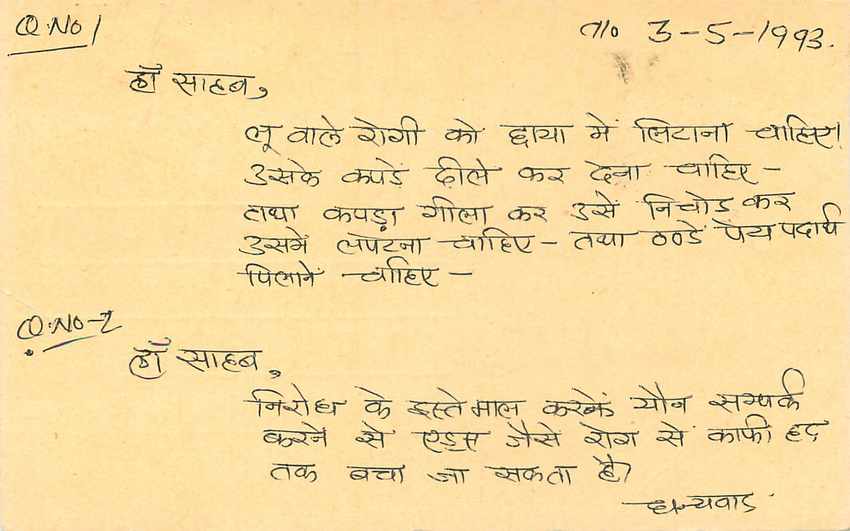 Q.No 1
ता० 3-5-1993.
डॉ साहब,
लू वाले रोगी को छाया में लिटाना चाहिए।
उसके कपडे ढीले कर देना चाहिए -
तथा कपड़ा गीला कर उसे निचोड कर
उसमें लपटना चाहिए - तथा ठण्डे पेय पदार्थ
पिलाने चाहिए -
Q.No-2
डॉ साहब,
निरोध के इस्तेमाल करके यौन सम्पर्क
करने से एड्स जैसे रोग से काफी हद
तक बचा जा सकता है?
धन्यवाद.